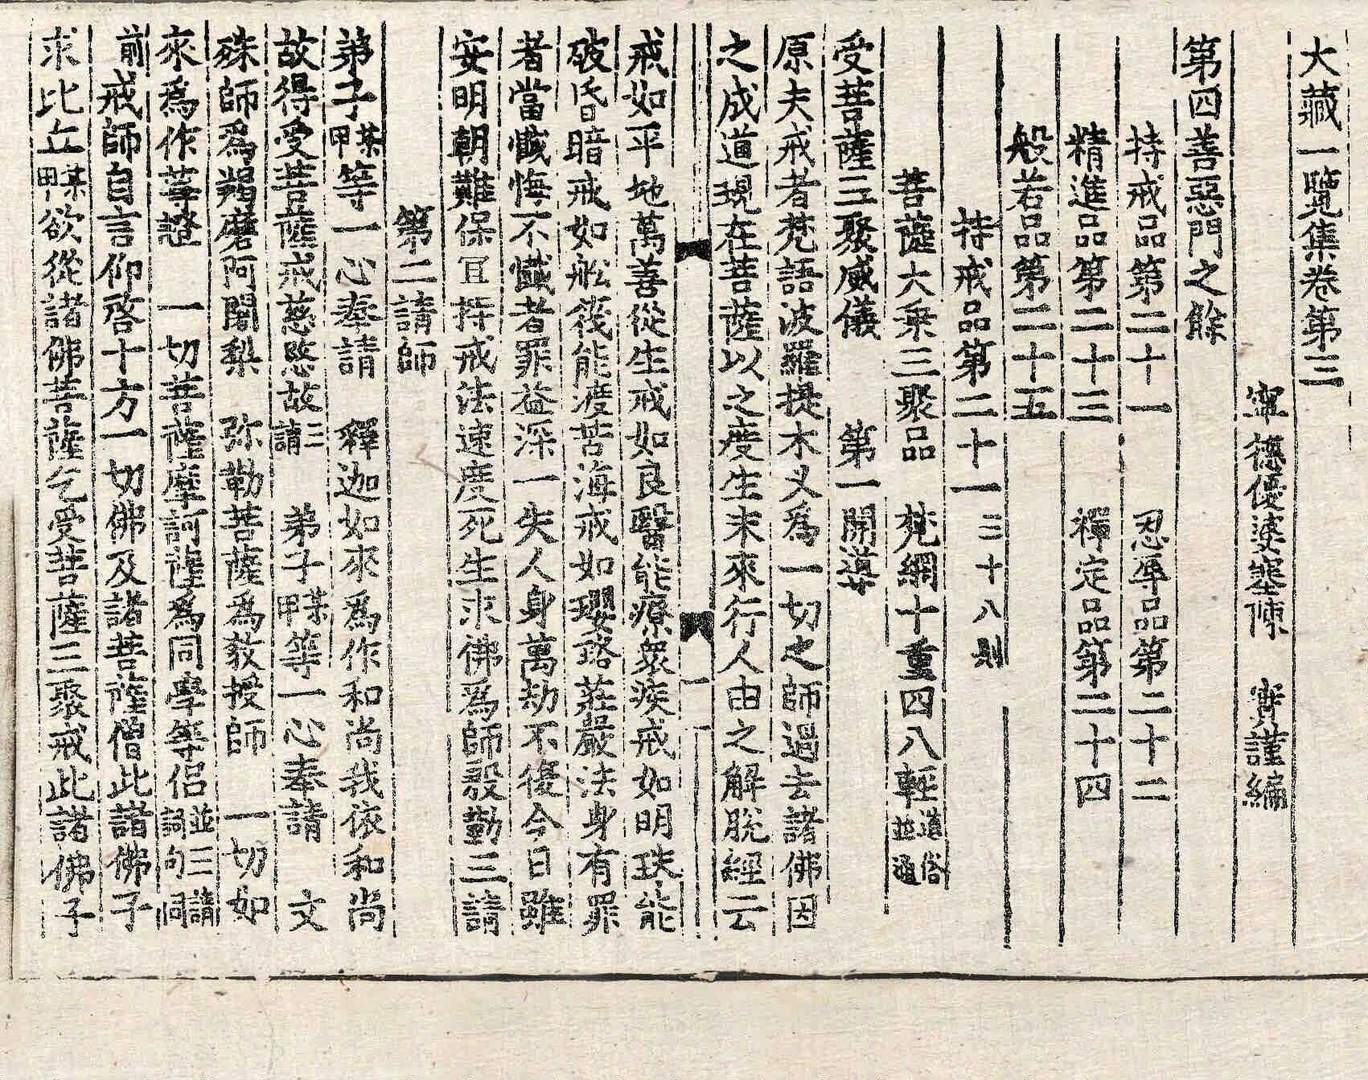 大藏一覽集卷第三
寧德優婆塞陳　實謹編
第四善惡門之餘
持戒品第二十一　忍辱品第二十二
精進品第二十三　禪定品第二十四
般若品第二十五
持戒品第二十一三十八則
菩薩六乘三聚品　梵網十重四八輕道俗並通
受菩薩三聚威儀　第一開導
原夫戒者梵語波羅提木叉爲一切之師過去諸佛因
之成道現在菩薩以之度生未來行人由之解脫經云
戒如平地萬善從生戒如良醫能療衆疾戒如明珠能
破昏暗戒如舩筏能渡苦海戒如瓔珞莊嚴法身有罪
者當懺悔不懺者罪益深一失人身萬劫不復今日雖
安明朝難保宜持戒法速度死生求佛爲師殷勤三請
第二請師
弟子某甲等一心奉請　釋迦如來爲作和尚我依和尚
故得受菩薩戒慈愍故三請　弟子某甲等一心奉請　文
殊師爲羯磨阿闍梨　弥勒菩薩爲敎授師　一切如
來爲作尊證　一切菩薩摩訶薩爲同學等侶並三請詞句同
前戒師自言仰啓十方一切佛及諸菩薩僧此諸佛子
求比丘某甲欲從諸佛菩薩乞受菩薩三聚戒此諸佛子